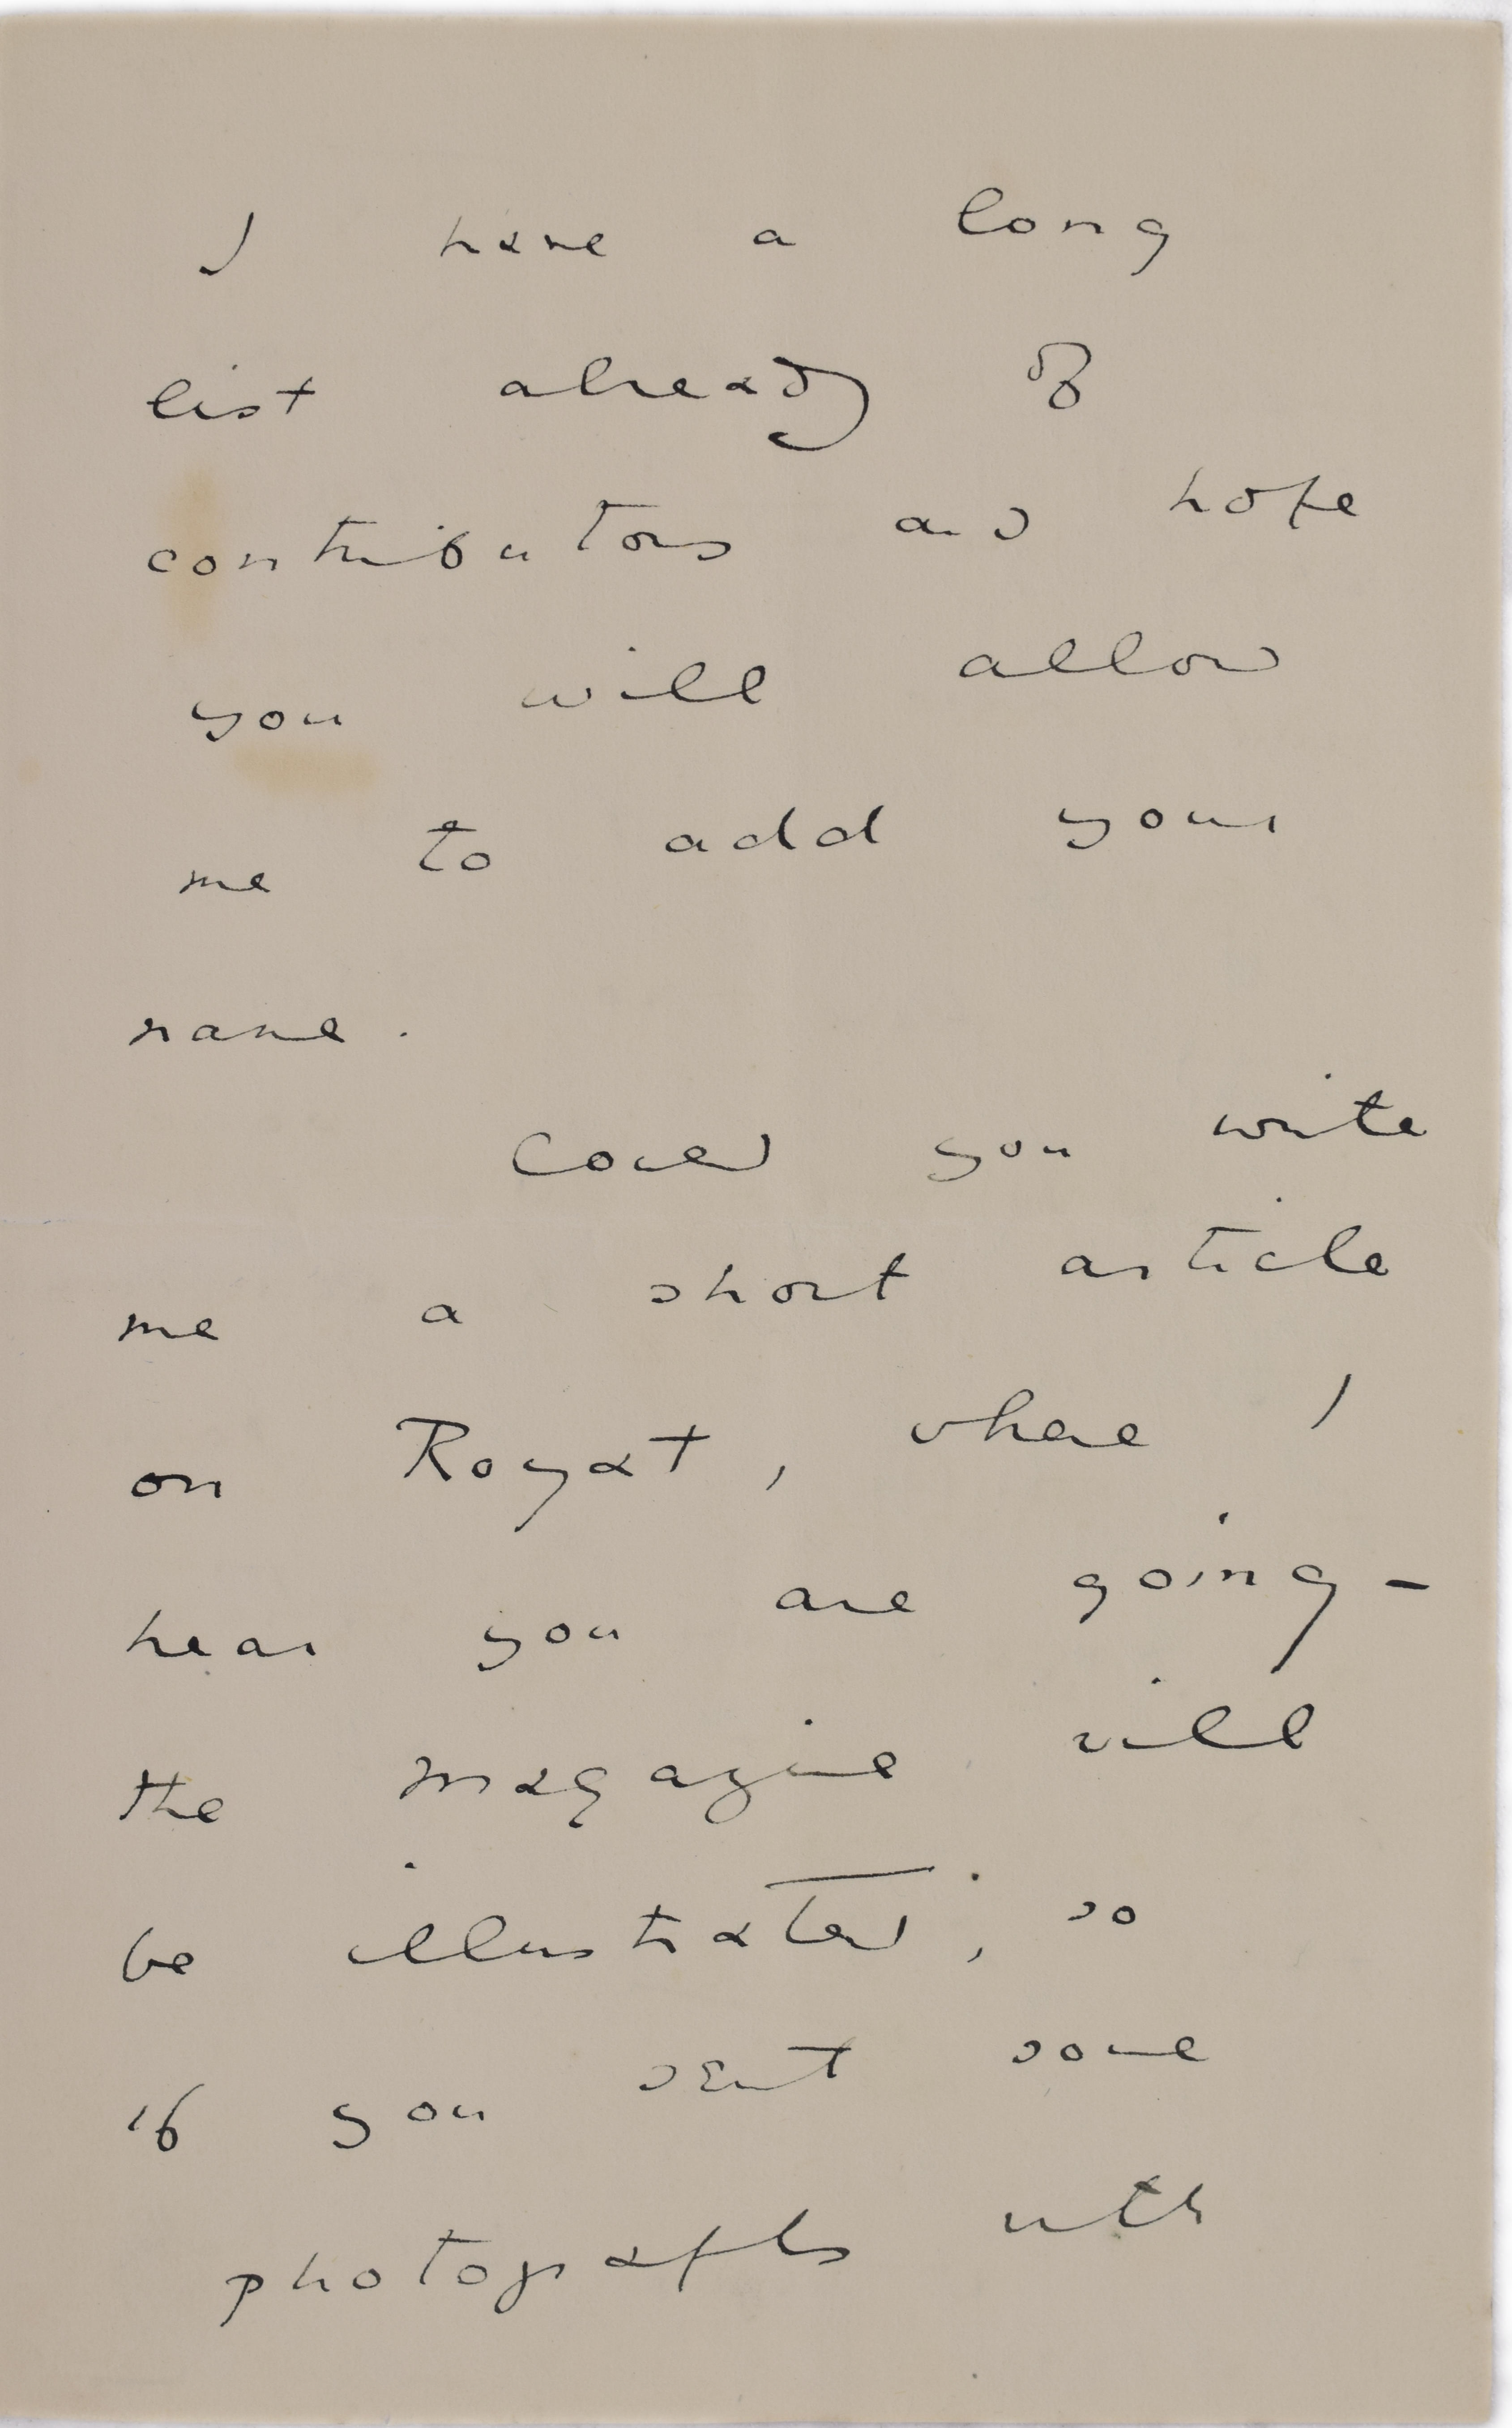 I have a long
list already of
contributors and hope
you will allow
me to add your
name.
Could you write
me a short article
on Royat, where I
hear you are going -
the magazine will
be illustrated; so
if you sent some
photographs with